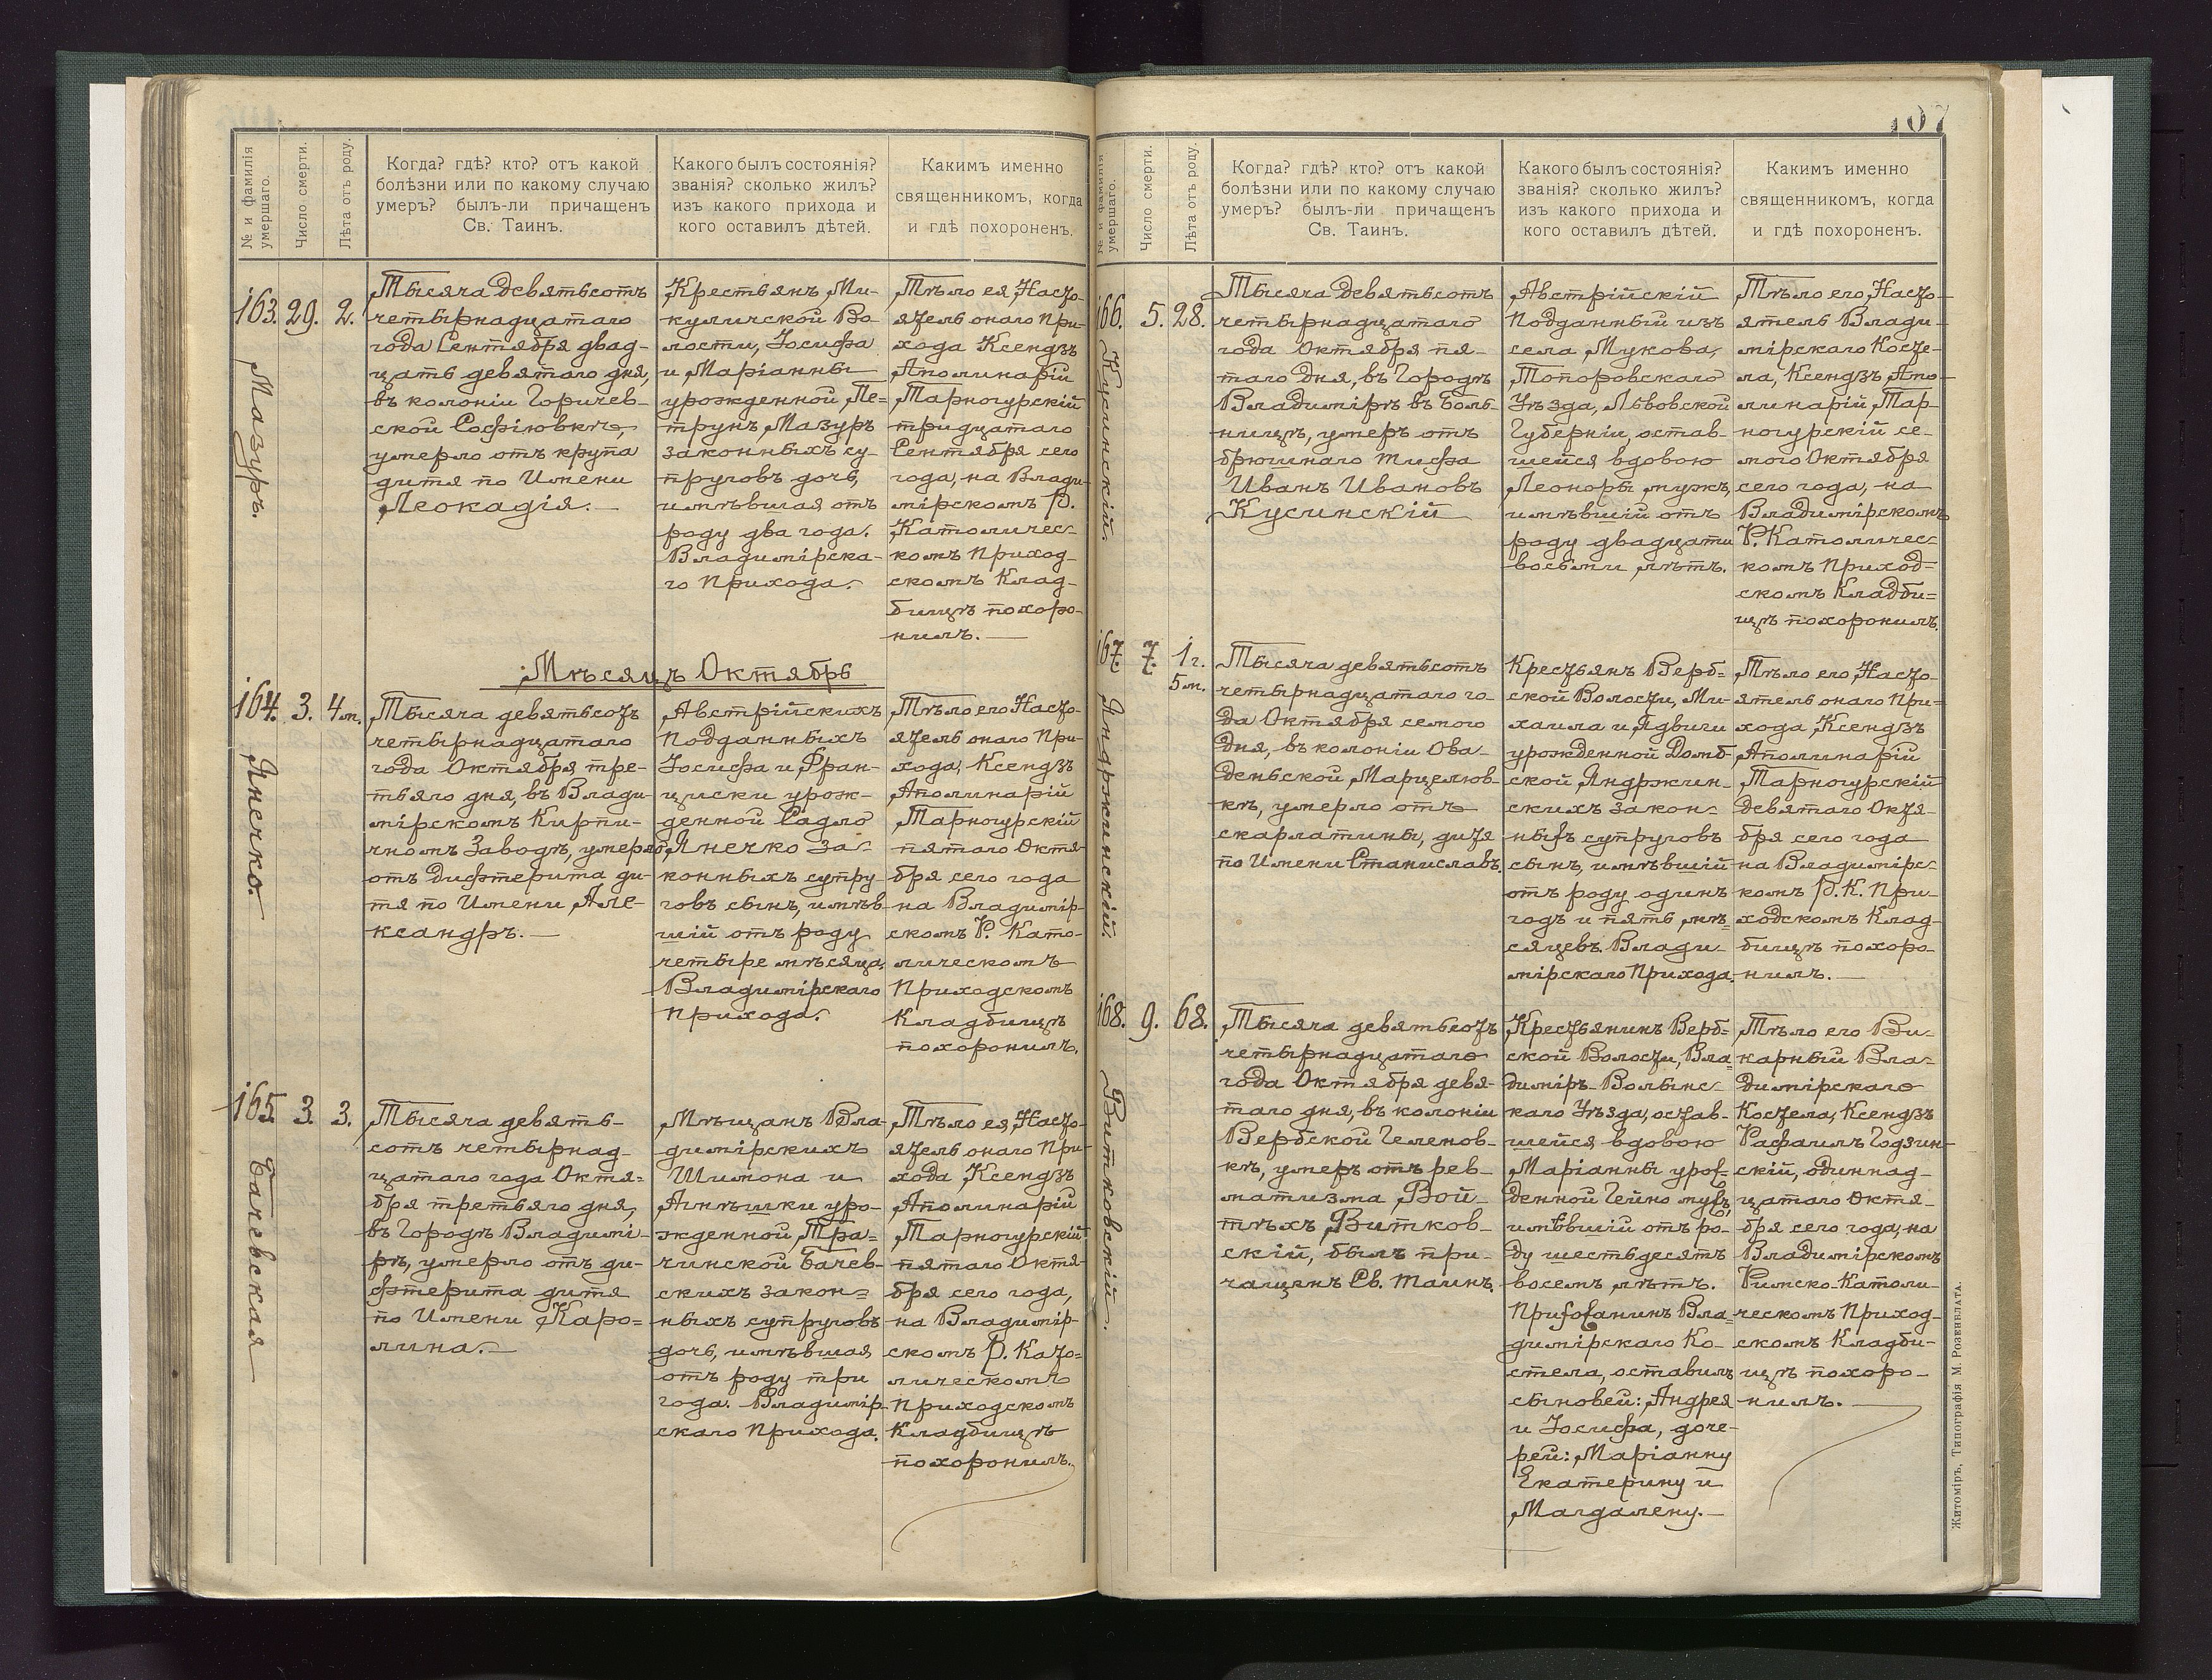 № и фамилія
умершаго.
Число смерти.
Лѣта отъ роду.
Когда? гдѣ? кто? отъ какой
болѣзни или по какому случаю
умеръ? былъ-ли причащенъ
Св. Таинъ.
Какого былъ состоянія?
званія? сколько жилъ?
изъ какого прихода и
кого оставилъ дѣтей.
Какимъ именно
священникомъ, когда
и гдѣ похороненъ.
163.
Мазуръ.
29.
2.
Тысяча девятьсотъ
четырнадцатаго
года Сентября двад-
цать девятаго дня,
въ колоніи Горичев-
ской Софіювкѣ,
умерло отъ крупа
дитя по Имени
Леокадія.—
Крестьянъ Ми-
куличской Во-
лости, Іосифа
и Маріанны
урожденной Пе-
трунъ, Мазуръ
законныхъ су-
пруговъ дочь,
имѣвшая отъ
роду два года.
Владимірска-
го Прихода.
Тѣло ея, Насто-
ятель онаго При-
хода Ксендзъ
Аполинарій
Тарногурскій
тридцатаго
Сентября сего
года, на Влади-
мірскомъ Р.
Католичес-
комъ Приход-
скомъ Клад-
бищѣ похоро-
нилъ.—
Мѣсяцъ Октябрь
164.
Янечко.
3.
4 м.
Тысяча девятьсотъ
четырнадцатаго
года Октября тре-
тьяго дня, въ Влади-
мірскомъ Кирпи-
чномъ Заводѣ, умерло
отъ дифтерита ди-
тя по Имени Але-
ксандръ.—
Австрійскихъ
Подданныхъ
Іосифа и Фран-
циски урож-
денной Садло
Янечко за-
конныхъ супру
говъ сынъ, имѣв-
шій отъ роду
четыре мѣсяца,
Владимірскаго
Прихода.
Тѣло его Насто-
ятель онаго При-
хода, Ксендзъ
Аполинарій
Тарногурскій
пятаго Октя-
бря сего года
на Владимір-
скомъ Р. Като-
лическомъ
Приходскомъ
Кладбищѣ
похоронилъ.
165.
Бачевская
3.
3.
Тысяча девять-
сотъ четырнад-
цатаго года Октя-
бря третьяго дня,
въ Городѣ Владимі-
рѣ, умерло отъ ди-
фтерита дитя
по Имени Каро-
лина.—
Мѣщанъ Вла-
димірскихъ
Шимона и
Агнѣшки уро-
жденной Тра-
чинской Бачев-
скихъ закон-
ныхъ супруговъ
дочь, имѣвшая
отъ роду три
года. Владимір-
скаго Прихода.
Тѣло ея, Насто-
ятель онаго При-
хода Ксендзъ
Аполинарій
Тарногурскій
пятаго Октя-
бря сего года,
на Владимір-
скомъ Р. Като-
лическомъ
Приходскомъ
Кладбищѣ
похоронилъ.
107
№ и фамилія
умершаго.
Число смерти.
Лѣта отъ роду.
Когда? гдѣ? кто? отъ какой
болѣзни или по какому случаю
умеръ? былъ-ли причащенъ
Св. Таинъ.
Какого былъ состоянія?
званія? сколько жилъ?
изъ какого прихода и
кого оставилъ дѣтей.
Какимъ именно
священникомъ, когда
и гдѣ похороненъ.
166.
Кусинскій.
5.
28.
Тысяча девятьсотъ
четырнадцатаго
года Октября пя-
таго дня, въ Городѣ
Владимірѣ въ Боль-
ницѣ, умеръ отъ
брюшнаго тифа
Иванъ Ивановъ
Кусинскій
Австрійскій
Подданный изъ
села Мукова,
Топоровскаго
Уѣзда, Львовской
Губерніи, остав-
шейся вдовою
Леоноры мужъ,
имѣвшій отъ
роду двадцать
восьми лѣтъ.
Тѣло его, Насто-
ятель Влади-
мірскаго Косте-
ла, Ксендзъ Апо-
линарій Тар-
ногурскій се-
мого Октября
сего года, на
Владимірскомъ
Р. Католичес-
комъ Приход-
скомъ Кладби-
щѣ похоронилъ.
167.
Яндржинскій.
7.
1 г.
5 м.
Тысяча девятьсотъ
четырнадцатаго го-
да Октября семого
дня, въ колоніи Ова-
деньской Марцелюв-
кѣ, умерло отъ
скарлатины, дитя
по Имени Станиславъ.
Крестьянъ Верб-
ской Волости, Ми-
хаила и Ядвиги
урожденной Домб-
ской, Яндржин-
скихъ закон-
ныхъ супруговъ
сынъ, имѣвшій
отъ роду одинъ
годъ и пять мѣ-
сяцевъ. Влади-
мірскаго Прихода.
Тѣло его, Насто-
ятель онаго При-
хода Ксендзъ
Аполинарій
Тарногурскій
девятаго Октя-
бря сего года
на Владимірс-
комъ Р. К. При-
ходскомъ Клад-
бищѣ похоро-
нилъ.—
168.
Витковскій.
9.
68.
Тысяча девятьсотъ
четырнадцатаго
года Октября девя-
таго дня, въ колоніи
Вербской Геленов-
кѣ, умеръ отъ рев-
матизма Вой-
тѣхъ Витков-
скій, былъ при-
чащенъ Св. Таинъ.
Крестьянинъ Верб-
ской Волости, Вла-
диміръ-Волынс-
каго Уѣзда, остав-
шейся вдовою
Маріанны урож-
денной Гейно мужъ,
имѣвшій отъ ро-
ду шестьдесятъ
восемь лѣтъ.
Прихожанинъ Вла-
димірскаго Ко-
стела, оставилъ
сыновей: Андрея
и Іосифа, доче-
рей: Маріанну
Екатерину и
Магдалену.—
Тѣло его Ви-
карный Вла-
димірскаго
Костела, Ксендзъ
Рафаилъ Годзин-
скій, одиннад-
цатаго Октя-
бря сего года, на
Владимірскомъ
Римско-Католи-
ческомъ Приход-
скомъ Кладби-
щѣ похоро-
нилъ.—
Житоміръ, Типографія М. Розенблата.